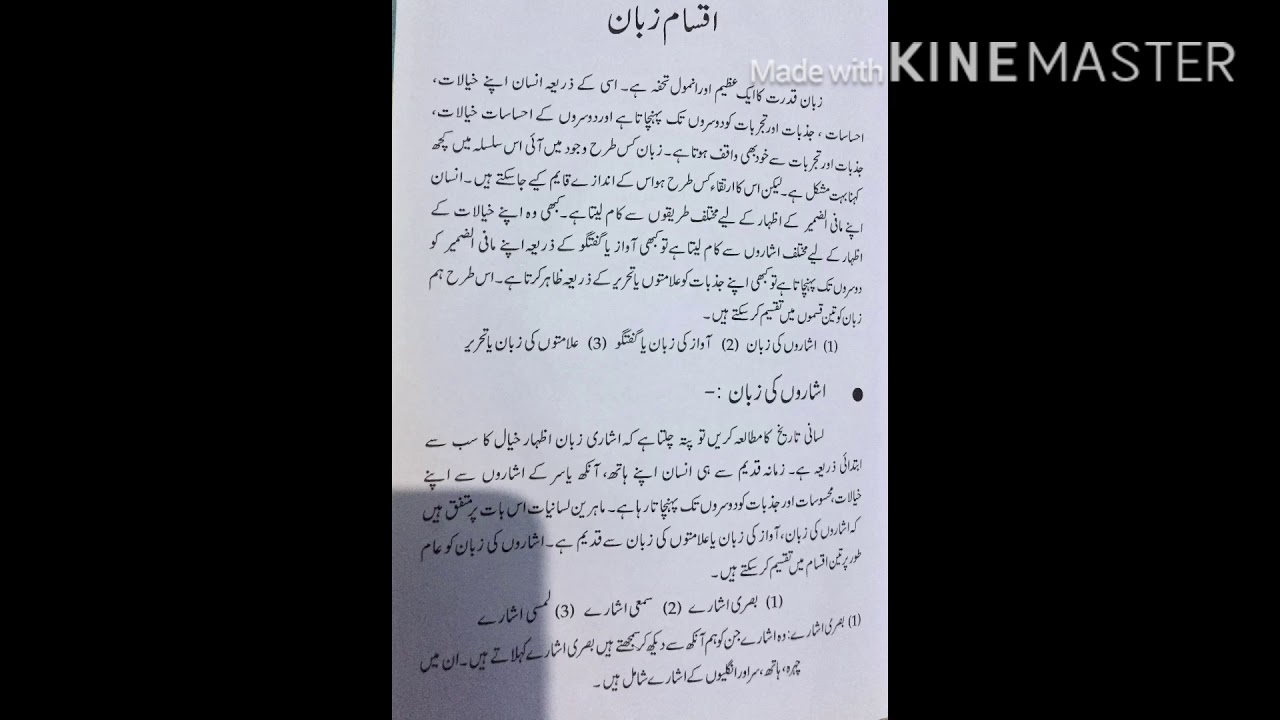 اقسام زبان
Made with KINEMASTER
زبان قدرت کا ایک عظیم اور انمول تحفہ ہے۔ اسی کے ذریعہ انسان اپنے خیالات،
احساسات ، جذبات اور تجربات کو دوسروں تک پہنچاتا ہے اور دوسروں کے احساسات خیالات،
جذبات اور تجربات سے خود بھی واقف ہوتا ہے۔ زبان کس طرح وجود میں آئی اس سلسلہ میں کچھ
کہنا بہت مشکل ہے۔ لیکن اس کا ارتقاء کس طرح ہوا اس کے اندازے قایم کیے جا سکتے ہیں ۔ انسان
اپنے مافی الضمیر کے اظہار کے لیے مختلف طریقوں سے کام لیتا ہے۔ کبھی وہ اپنے خیالات کے
اظہار کے لیے مختلف اشاروں سے کام لیتا ہے تو کبھی آواز یا گفتگو کے ذریعہ اپنے مافی الضمیر کو
دوسروں تک پہنچاتا ہے تو کبھی اپنے جذبات کو علامتوں یا تحریر کے ذریعہ ظاہر کرتا ہے۔ اس طرح ہم
زبان کو تین قسموں میں تقسیم کر سکتے ہیں ۔
(1) اشاروں کی زبان (2) آواز کی زبان یا گفتگو (3) علامتوں کی زبان یا تحریر
● اشاروں کی زبان :–
لسانی تاریخ کا مطالعہ کریں تو پتہ چلتا ہے کہ اشاری زبان اظہار خیال کا سب سے
ابتدائی ذریعہ ہے۔ زمانہ قدیم سے ہی انسان اپنے ہاتھ، آنکھ یا سر کے اشاروں سے اپنے
خیالات، محسوسات اور جذبات کو دوسروں تک پہنچاتا رہا ہے۔ ماہرین لسانیات اس بات پر متفق ہیں
کہ اشاروں کی زبان، آواز کی زبان یا علامتوں کی زبان سے قدیم ہے۔ اشاروں کی زبان کو عام
طور پر تین اقسام میں تقسیم کر سکتے ہیں ۔
(1) بصری اشارے (2) سمعی اشارے (3) لمسی اشارے
(1) بصری اشارے: وہ اشارے جن کو ہم آنکھ سے دیکھ کر سمجھتے ہیں بصری اشارے کہلاتے ہیں۔ ان میں
چہرہ، ہاتھ، سر اور انگلیوں کے اشارے شامل ہیں ۔